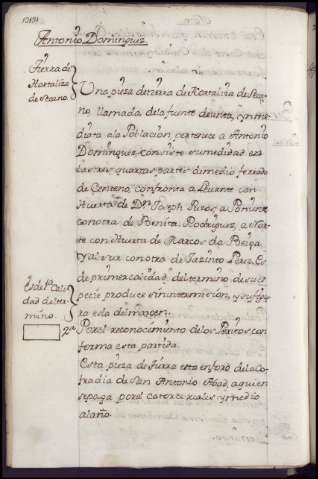 Antonio Dominguez
Tierra de
Hortaliza
de Secano
Una pieza de tierra de Hortaliza de Seca-
no llamada dela fuente de , y inme
diata ala Poblacion pertenece a Antonio
Dominguez, consiste su medida en
las tres quartas partes de medio ferrado
de Centeno confronta a Levante con
Huerta de Dn. Joseph Rivas, a Poniente
con otra de Benita Rodriguez, a Nor-
te con Huerta de Marcos da Veiga,
y al Sur con otra de Jazinto Perez. Es
de primera calidad del termino, de su es-
pecie produce sin intermision, y su figu-
ra es la del margen.
Es de 1ª Cali
dad del ter-
mino.
2ª Por el reconocimiento delos Peritos con-
forma esta partida.
Esta pieza de tierra esta en foro dela Co-
fradia de San Antonio Abad, a quien
se paga por el catorce reales y medio
al año.